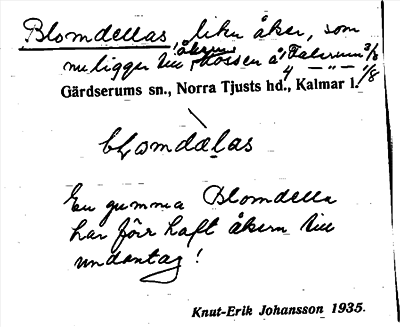 Blomdellas, liten åker, som
nu ligger till åkern Mossen å Falerum 3/8
4 — " — 1/8
Gärdserums sn., Norra Tjusts hd., Kalmar l.
blomdælas
En gumma Blomdella
har förr haft åkern till
undantag!
Knut-Erik Johansson 1935.